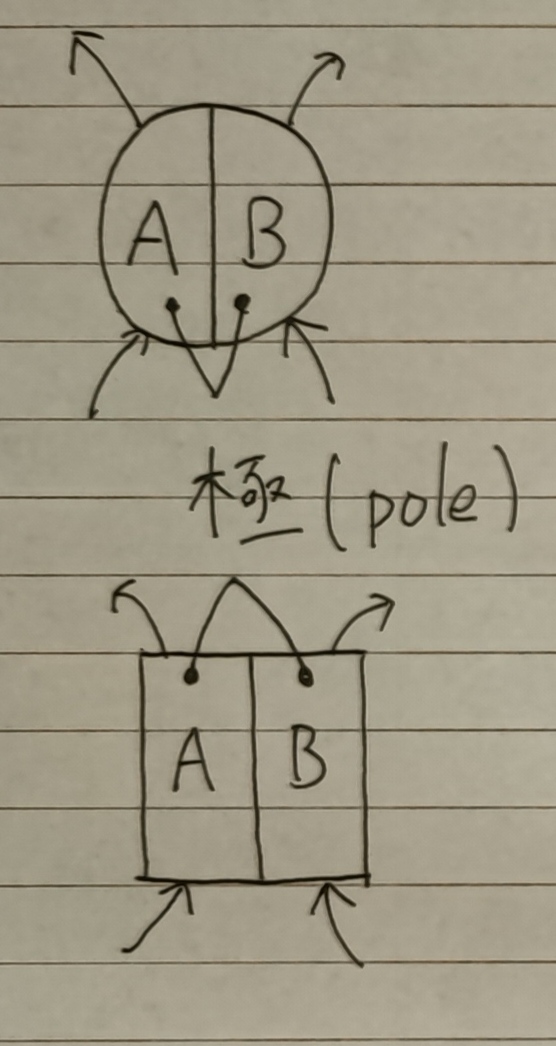 A B
極 (pole)
A B